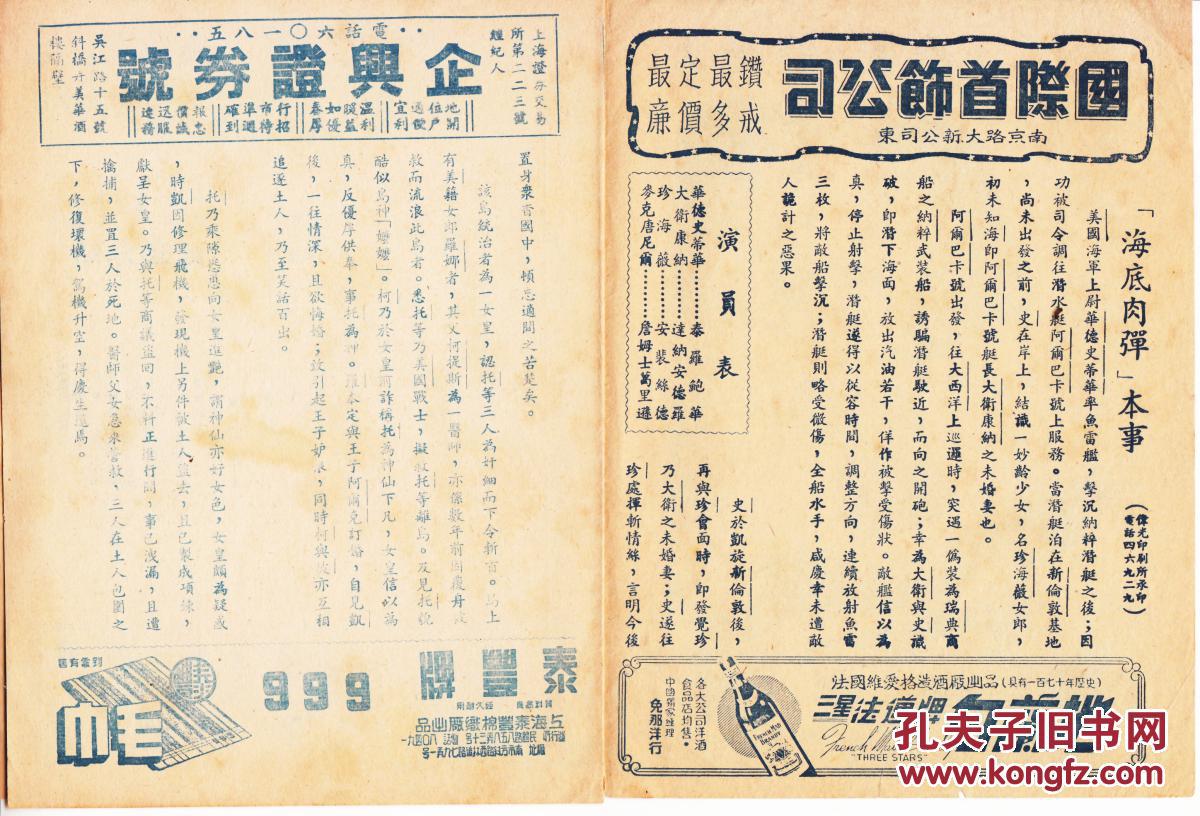 國際首飾公司
南京路大新公司東
鑽戒最多
定價最廉
「海底肉彈」本事
(偉光印刷所承印
電話四六九二九)
美國海軍上尉華德史蒂華率魚雷艦，擊沉納粹潛艇之後；因
功被司令調往潛水艇阿爾巴卡號上服務。當潛艇泊在新倫敦基地
，尚未出發之前，史在岸上，結識一妙齡少女，名珍海薇女郎，
初未知海即阿爾巴卡號艇長大衛康納之未婚妻也。
阿爾巴卡號出發，往大西洋上巡邏時，突遇一偽裝為瑞典商
船之納粹武裝船，誘騙潛艇駛近，而向之開砲；幸為大衛與史識
破，即潛下海面，放出汽油若干，佯作被擊受傷狀。敵艦信以為
真，停止射擊，潛艇遂得以從容時間，調整方向，連續放射魚雷
三枚，將敵船擊沉；潛艇則略受微傷，全船水手，咸慶幸未遭敵
人詭計之惡果。
演員表
華德史蒂華………泰羅鮑華
大衛康納………達納安德羅
珍海薇………安裴絲德
麥克唐尼爾………詹姆士萬里遜
史於凱旋新倫敦後，
再與珍會面時，即發覺珍
乃大衛之未婚妻；史遂往
珍處揮斬情絲，言明今後
法國維愛格造酒廠出品(具有一百七十年歷史)
三星法道牌
French Maid
"THREE STARS"
FRENCH MAID
BRANDY
各大公司洋酒
食品店均售。
中國獨家經理
免那洋行
電話六〇一八五
企興證券號
上海證券交易
所第二二三號
經紀人
吳江路十五號
斜橋弄美華酒
樓隔壁
地位適宜
開戶便利
溫暖如春
利益優厚
行市準確
招待週到
報價迅速
忠誠服務
置身眾香國中，頓忘適間之苦楚矣。
該島統治者為一女皇，認托等三人為奸細而下令斬首。島上
有美籍女郎羅娜者，其父柯提斯為一醫師，亦係數年前因覆舟被
救而流浪此島者。悉托等乃美國戰士，擬救托等離島。及見托貌
酷似島神「嬤嬤」。柯乃於女皇前詐稱托為神仙下凡，女皇信以為
真，反優厚供奉，事托為神。羅本定與王子阿爾克訂婚，自見凱
後，一往情深，且欲悔婚；故引起王子妒恨，同時柯與女亦互相
追逐土人，乃至笑話百出。
托乃乘隙慫恿向女皇進艷，謂神仙亦好女色，女皇頗為疑惑
，時凱因修理飛機，發現機上另件被土人盜去，且已製成項練，
獻呈女皇。乃與托等商議盜回，不料正進行間，事已洩漏，且遭
擒捕，並置三人於死地。醫師父女急來營救，三人在土人包圍之
下，修復壞機，駕機升空，得慶生還焉。
泰豐牌
999
毛巾
上海泰豐棉織廠出品
孔夫子旧书网
www.kongfz.com